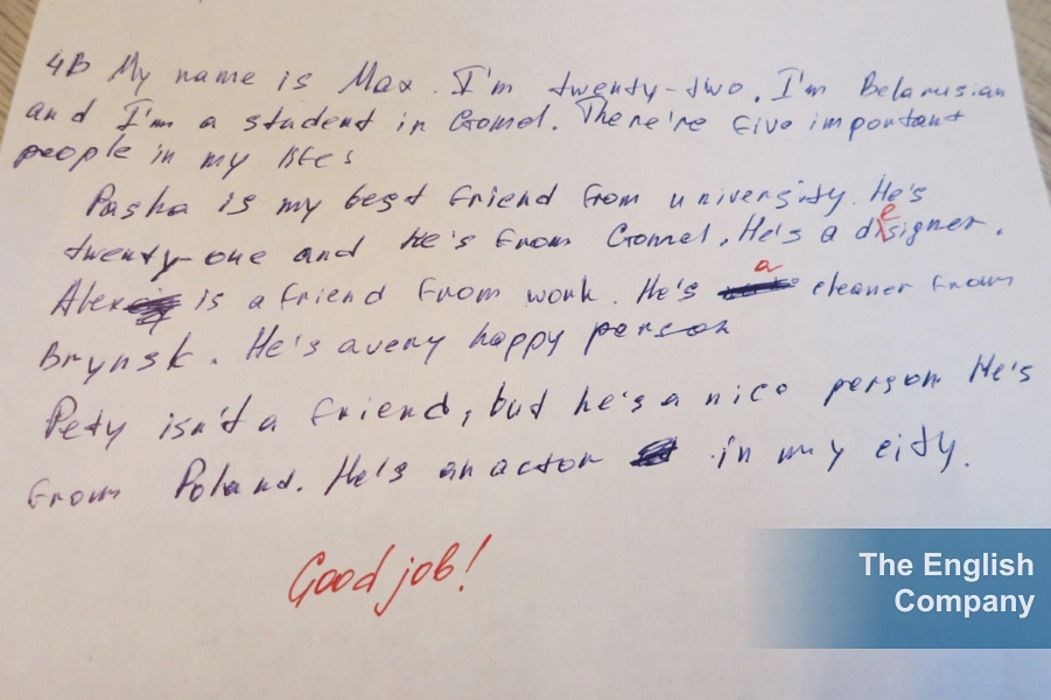 4B My name is Max. I'm twenty-two. I'm Belarusian
and I'm a student in Gomel. There're five important
people in my life:
Pasha is my best friend from university. He's
twenty-one and He's from Gomel. He's a designer.
Alex is a friend from work. He's a cleaner from
Brynsk. He's a very happy person
Pety isn't a friend, but he's a nice person He's
from Poland. He's an actor in my city.
Good job!
The English
Company